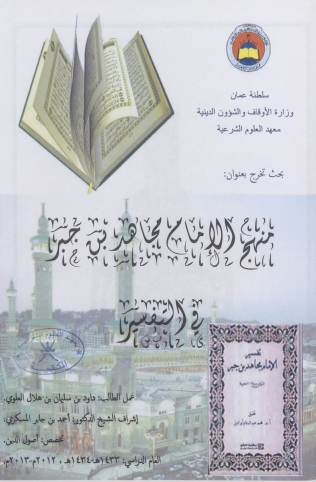 سلطنة عمان
وزارة الأوقاف والشؤون الدينية
معهد العلوم الشرعية
بحث تخرج بعنوان:
منهج الإمام مجاهد بن جبر
في التفسير
تفسير
الإمام مجاهد بن جبر
عمل الطالب: داود بن سليمان بن هلال العلوي.
إشراف الشيخ الدكتور: أحمد بن جابر المسكري.
تخصص: أصول الدين.
العام الدراسي: ١٤٣٣هـ-١٤٣٤هـ ، ٢٠١٢م-٢٠١٣م.